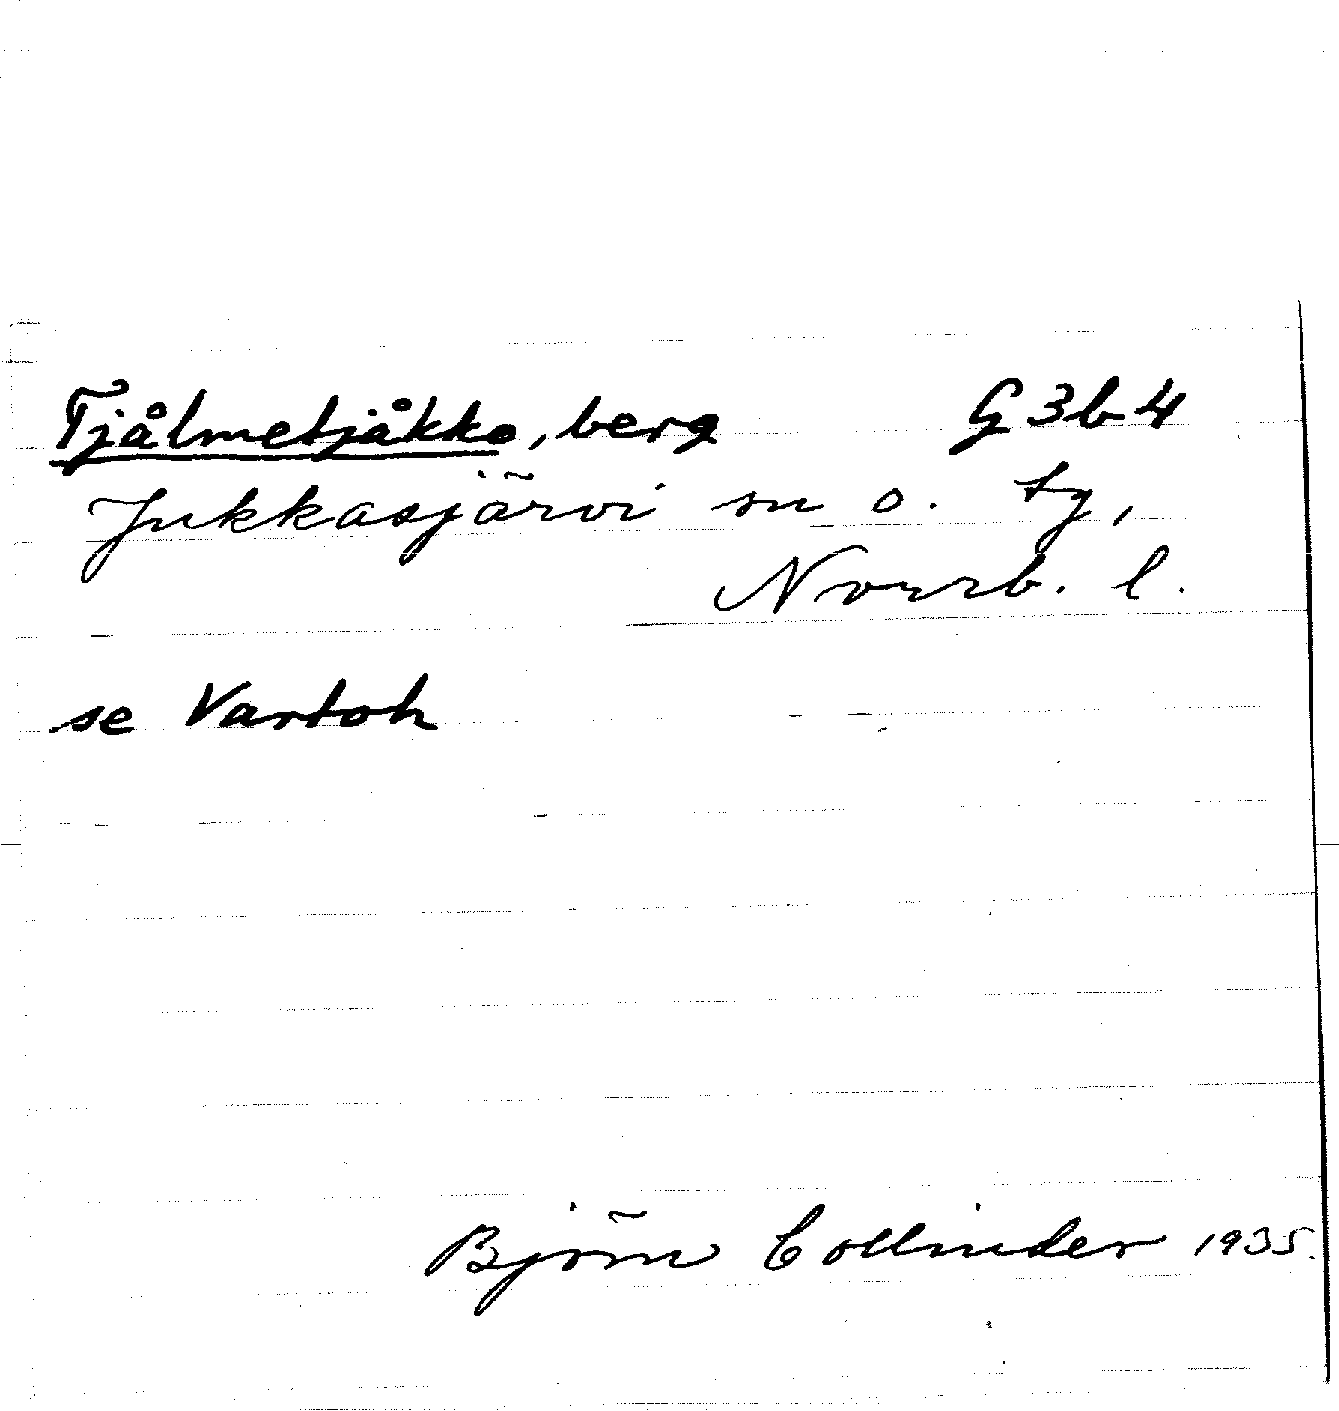 Tjålmetjåkko, berg G 3b 4
Jukkasjärvi sn o. tg,
Norrb. l.
se Vartoh
Björn Collinder 1935.